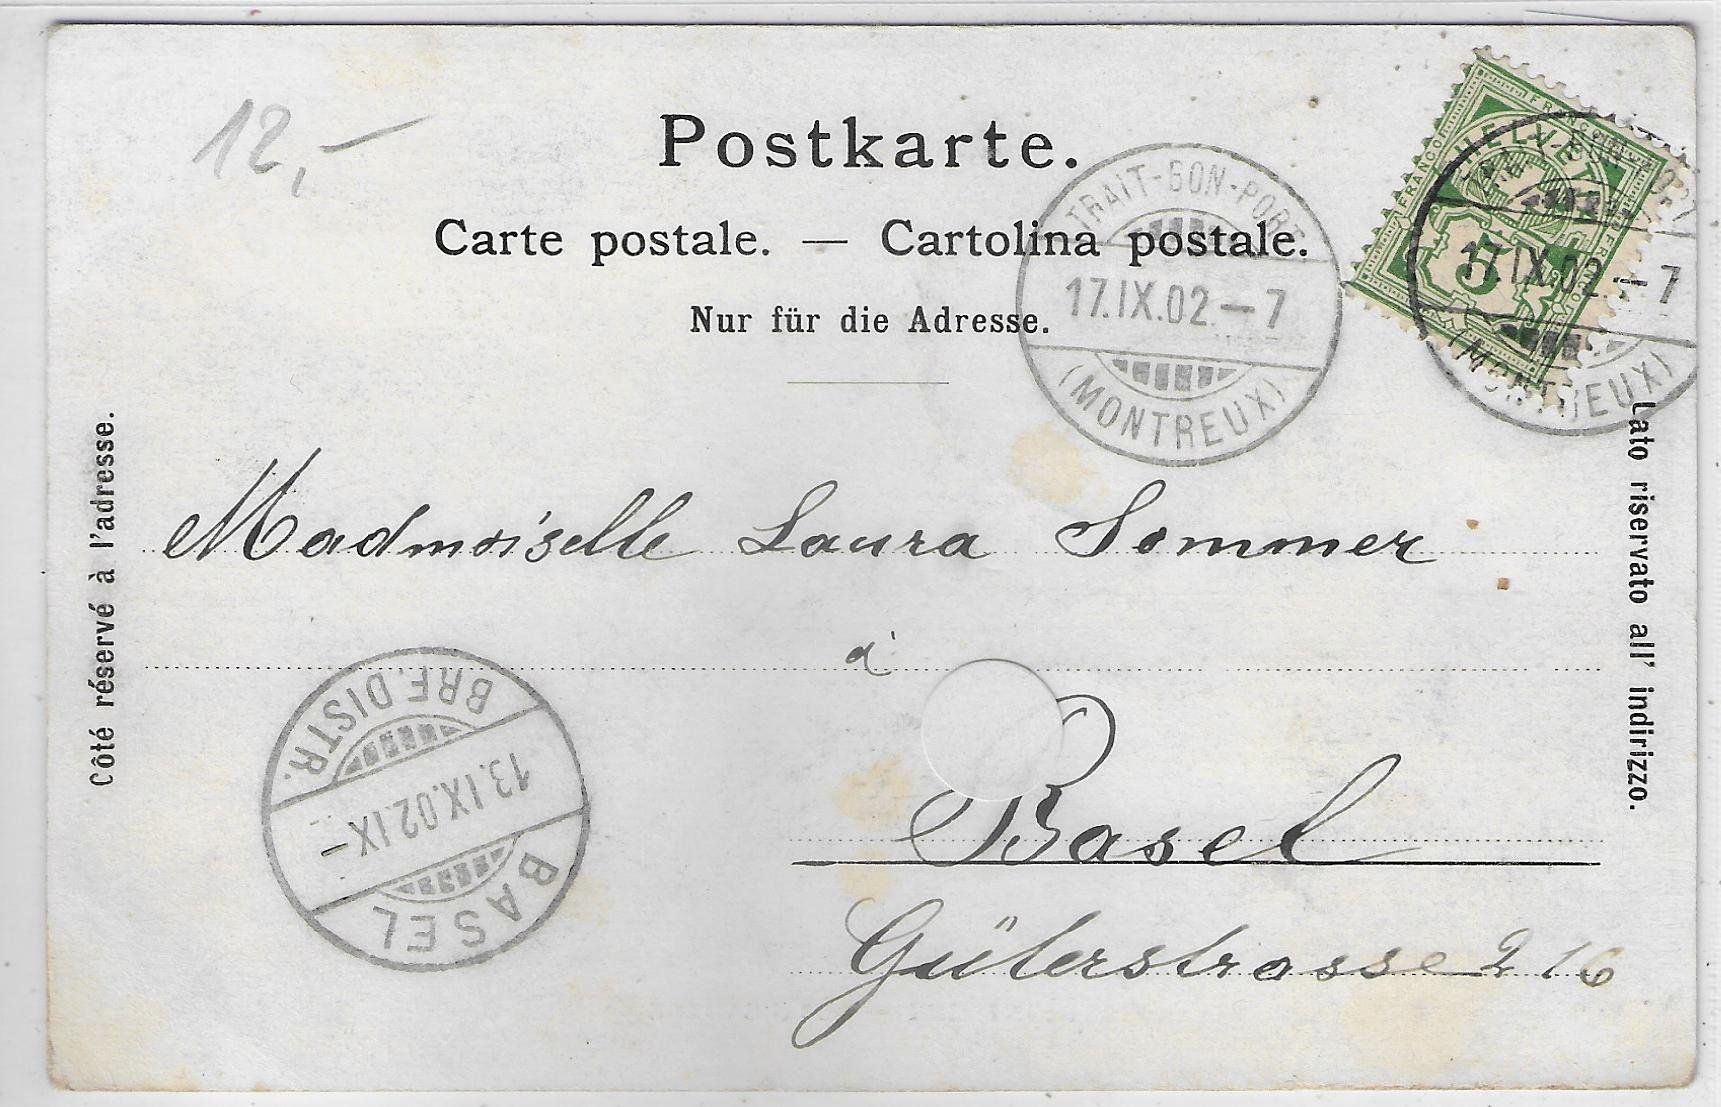 12,-
Postkarte.
Carte postale. — Cartolina postale.
Nur für die Adresse.
TRAIT-BON-PORT
17.IX.02.—7
(MONTREUX)
HELVETIA
FRANCO
5
17.IX.02.—7
(MONTREUX)
Côté réservé à l'adresse.
Lato riservato all' indirizzo.
Madmoiselle Laura Sommer
à
Basel
Güterstrasse 216
BRF.DISTR.
IX—
BASEL